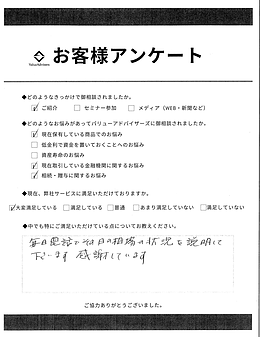 ValueAdvisers
お客様アンケート
◆どのようなきっかけで御相談されましたか。
☑ ご紹介 □ セミナー参加 □ メディア（WEB・新聞など）
◆どのようなお悩みがあってバリューアドバイザーズに御相談されましたか。
☑ 現在保有している商品でのお悩み
□ 低金利で資金を置いておくことへのお悩み
□ 資産寿命のお悩み
☑ 現在取引している金融機関に関するお悩み
☑ 相続・贈与に関するお悩み
◆現在、弊社サービスに満足いただけておりますか。
☑大変満足している □満足している □普通 □あまり満足していない □満足していない
◆中でも特にご満足いただけている点についてお教えください。
毎日電話で今日の相場の状況を説明して
下さいます 感謝しています
ご協力ありがとうございました。